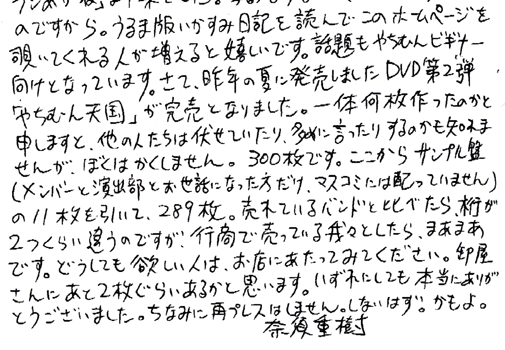 のですから。うるま版いかすみ日記を読んでこのホームページを
覗いてくれる人が増えると嬉しいです。話題もやちむんビギナー
向けとなっています。さて、昨年の夏に発売しましたDVD第2弾
「やちむん天国」が完売となりました。一体何枚作ったのかと
申しますと、他の人たちは伏せていたり、多めに言ったりするのかも知れま
せんが、ぼくはかくしません。300枚です。ここからサンプル盤
(メンバーと演出部とお世話になった方だけ、マスコミには配っていません)
の11枚を引いて、289枚。売れているバンドと比べたら、桁が
2つくらい違うのですが、行商で売っている我々としたら、まあまあ
です。どうしても欲しい人は、お店にあたってみてください。卸屋
さんにあと2枚ぐらいあるかと思います。いずれにしても本当にありが
とうございました。ちなみに再プレスはしません。しないはず。かもよ。
奈須重樹